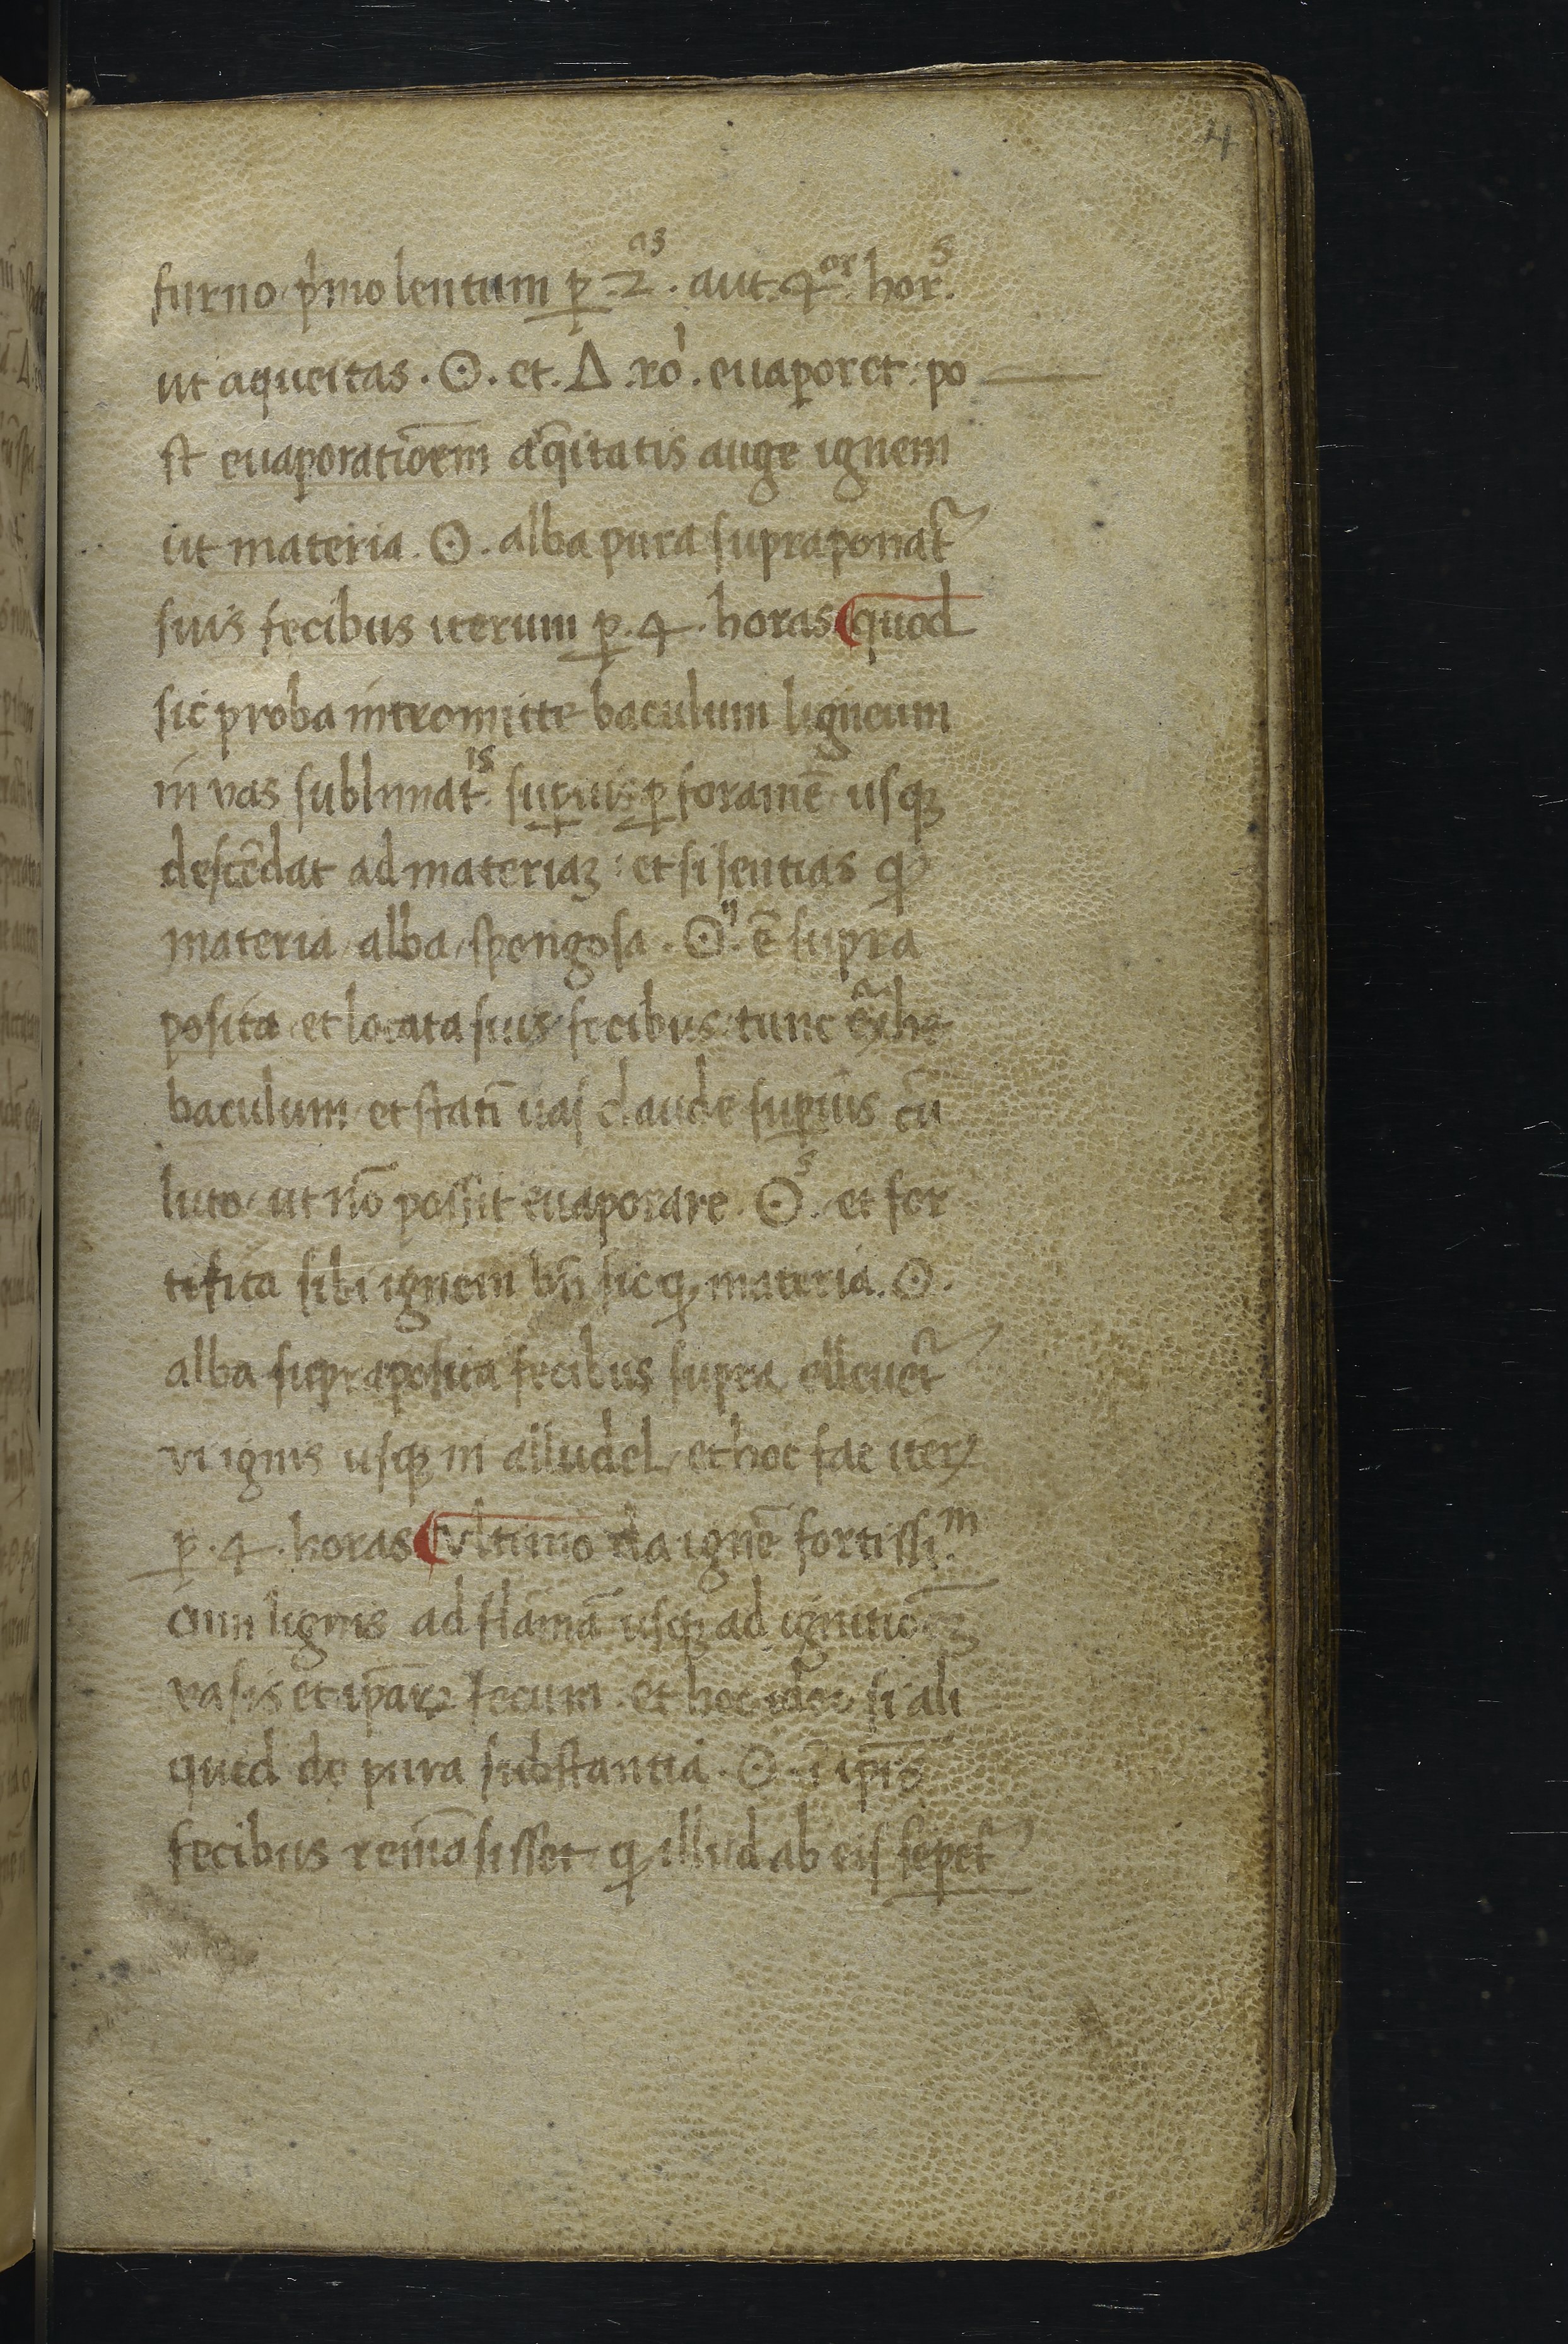 4
furno p̍mo lentum ꝑ .2.ᵃˢ aut .4.ᵒʳ horˢ.
ut aqueitas . ☉ . et . Δ . ro̍ . euaporet : po
st euaporatiōem aq̄itatis auge ignem
ut materia . ☉ . alba pura supraponat᷑
suis fecibus iterum ꝑ . 4 . horas quod
sic proba intromitte baculum ligneum
in vas sublimat.ⁱˢ suꝑius ꝑ foramē usqꝫ
descēdat ad materiaꝫ : et si sentias ꝙ
materia alba spongosa . ☉ . ē supra
posita et locata suis fecibus tunc ex̃he
baculum et statī uas claude suꝑius cū
luto ut nō possit euaporare . ☉ˢ . et for
tifica sibi ignem bn̄ sic ꝙ materia . ☉ .
alba supraposita fecibus supra elleuet᷑
vi ignis usqꝫ in alludel et hoc fac iteꝝ
ꝑ . 4 . horas vltimo da ignē fortissi.ᵐ
cum lignis ad flāmā usqꝫ ad ignitiōeꝫ
vasis et ip̄aꝝ fecum . et hoc ideo si ali
quod de pura substantia . ☉ . ī ip̄is
fecibus remāsisset ꝙ illud ab eis seꝑet᷑